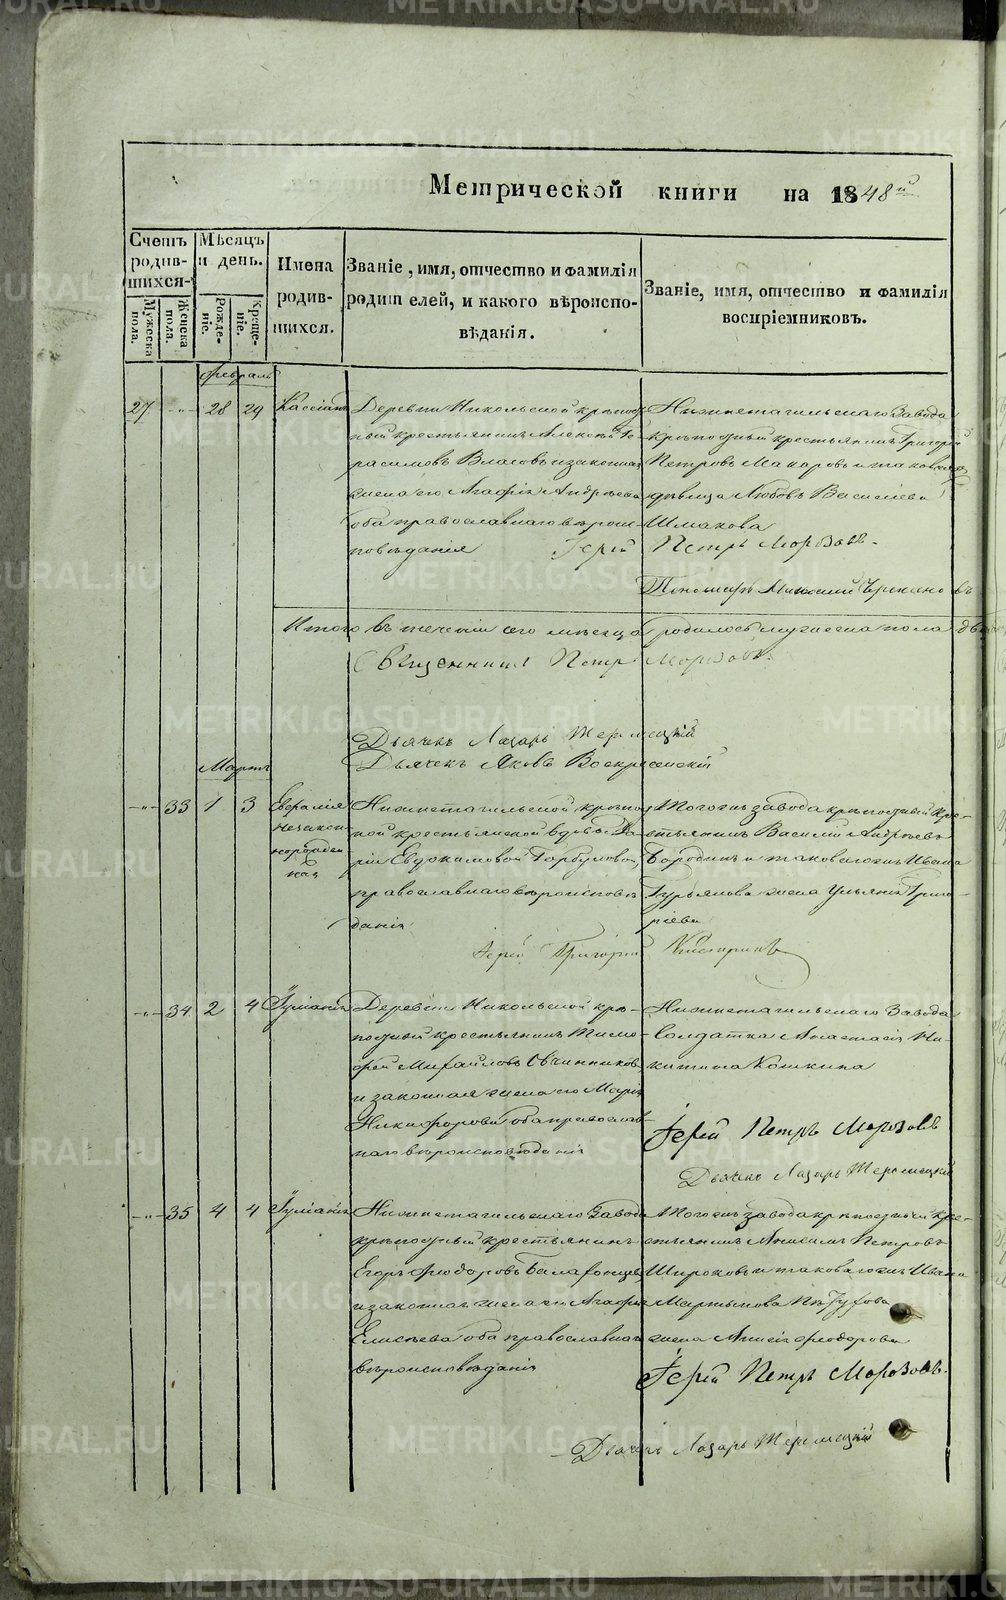 Метрической книги на 1848й
Счетъ родив-шихся.
Мѣсяцъ и день.
Имена родив-шихся.
Званіе, имя, отчество и фамилія
родителей, и какого вѣроиспо-
вѣданія.
Званіе, имя, отчество и фамилія
воспріемниковъ.
Мужеска пола.
Женска пола.
Рожде-ніе.
Креще-ніе.
Февраль
27 -"- 28 29 Кассіанъ
Деревни Никольской крѣпост
ный крестьянинъ Алексѣй Ге
расимовъ Власовъ и законная
жена его Агафія Андреева
оба православнаго вѣроис
повѣданія
Нижнетагильскаго Завода
крѣпостный крестьянинъ Григорій
Петровъ Макаровъ и таковая
дѣвица Любовь Василіева
Шмакова
Іерей Петръ Морозовъ.
Пономарь
Итого въ теченіи сего мѣсяца родилось мужеска пола
Священникъ Петръ Морозовъ.
Дьячекъ Лазарь
Дьячекъ Яковъ Воскресенскій
Мартъ
-"- 33 1 3
незакон
норожден
ная
Нижнетагильской крѣпост
ной крестьянской вдовы Да
ріи Евдокимовой
православнаго вѣроисповѣ
данія
Тогожъ завода крѣпостный кре-
стьянинъ Василій Андреевъ
Бородинъ и таковагожъ Ивана
Гурьянова жена Ульянія Григо-
ріева
Іерей Григорій
-"- 34 2 4 Іуліанія
Деревни Никольской крѣ-
постный крестьянинъ Тимо
фей Михайловъ Овчинниковъ
и законная жена его Марія
Никифорова оба православ
наго вѣроисповѣданія
Нижнетагильскаго Завода
Солдатка Анастасія Ни-
китина Кошкина
Іерей Петръ Морозовъ
Дьячекъ Лазарь
-"- 35 4 4 Іуліанія
Нижнетагильскаго Завода
крѣпостный крестьянинъ
Егоръ Ѳедоровъ
и законная жена его Агафія
Елисеева оба православнаго
вѣроисповѣданія
Тогожъ завода крѣпостный кре-
стьянинъ Анисимъ Петровъ
Широковъ и таковагожъ Ивана
Мартынова Пѣтухова
жена Анисія Ѳеодорова
Іерей Петръ Морозовъ.
Дьячекъ Лазарь
METRIKI.GASO-URAL.RU